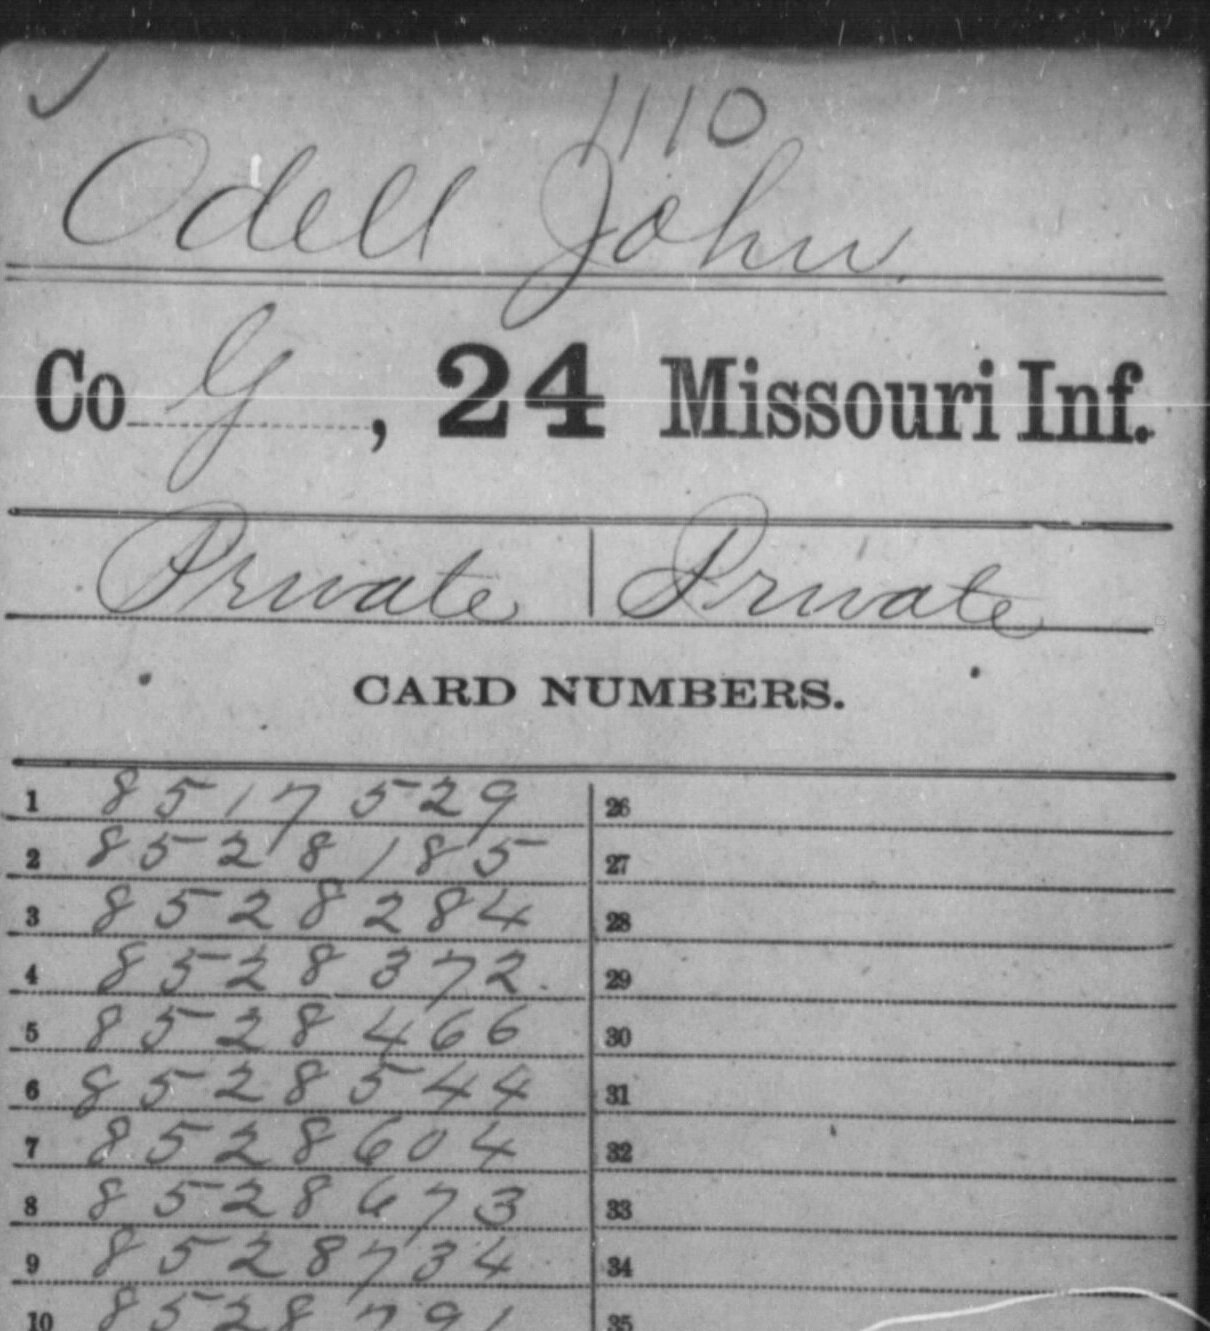 1110
Odell John
Co G, 24 Missouri Inf.
Private | Private
CARD NUMBERS.
1 8517529 26
2 8528185 27
3 8528284 28
4 8528372 29
5 8528466 30
6 8528544 31
7 8528604 32
8 8528673 33
9 8528734 34
10 8528791 35